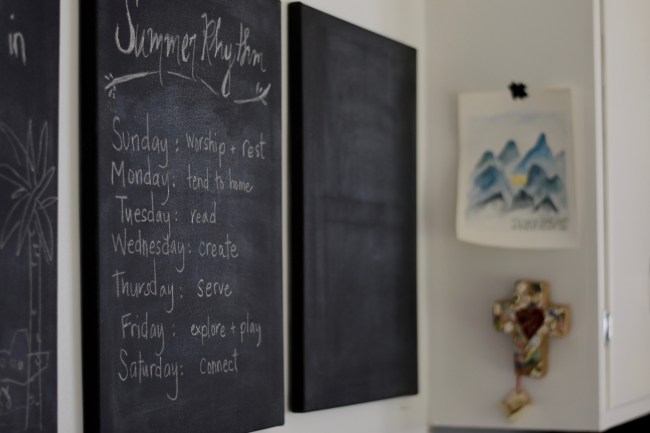 in
Summer Rhythm
Sunday: worship + rest
Monday: tend to home
Tuesday: read
Wednesday: create
Thursday: serve
Friday: explore + play
Saturday: connect